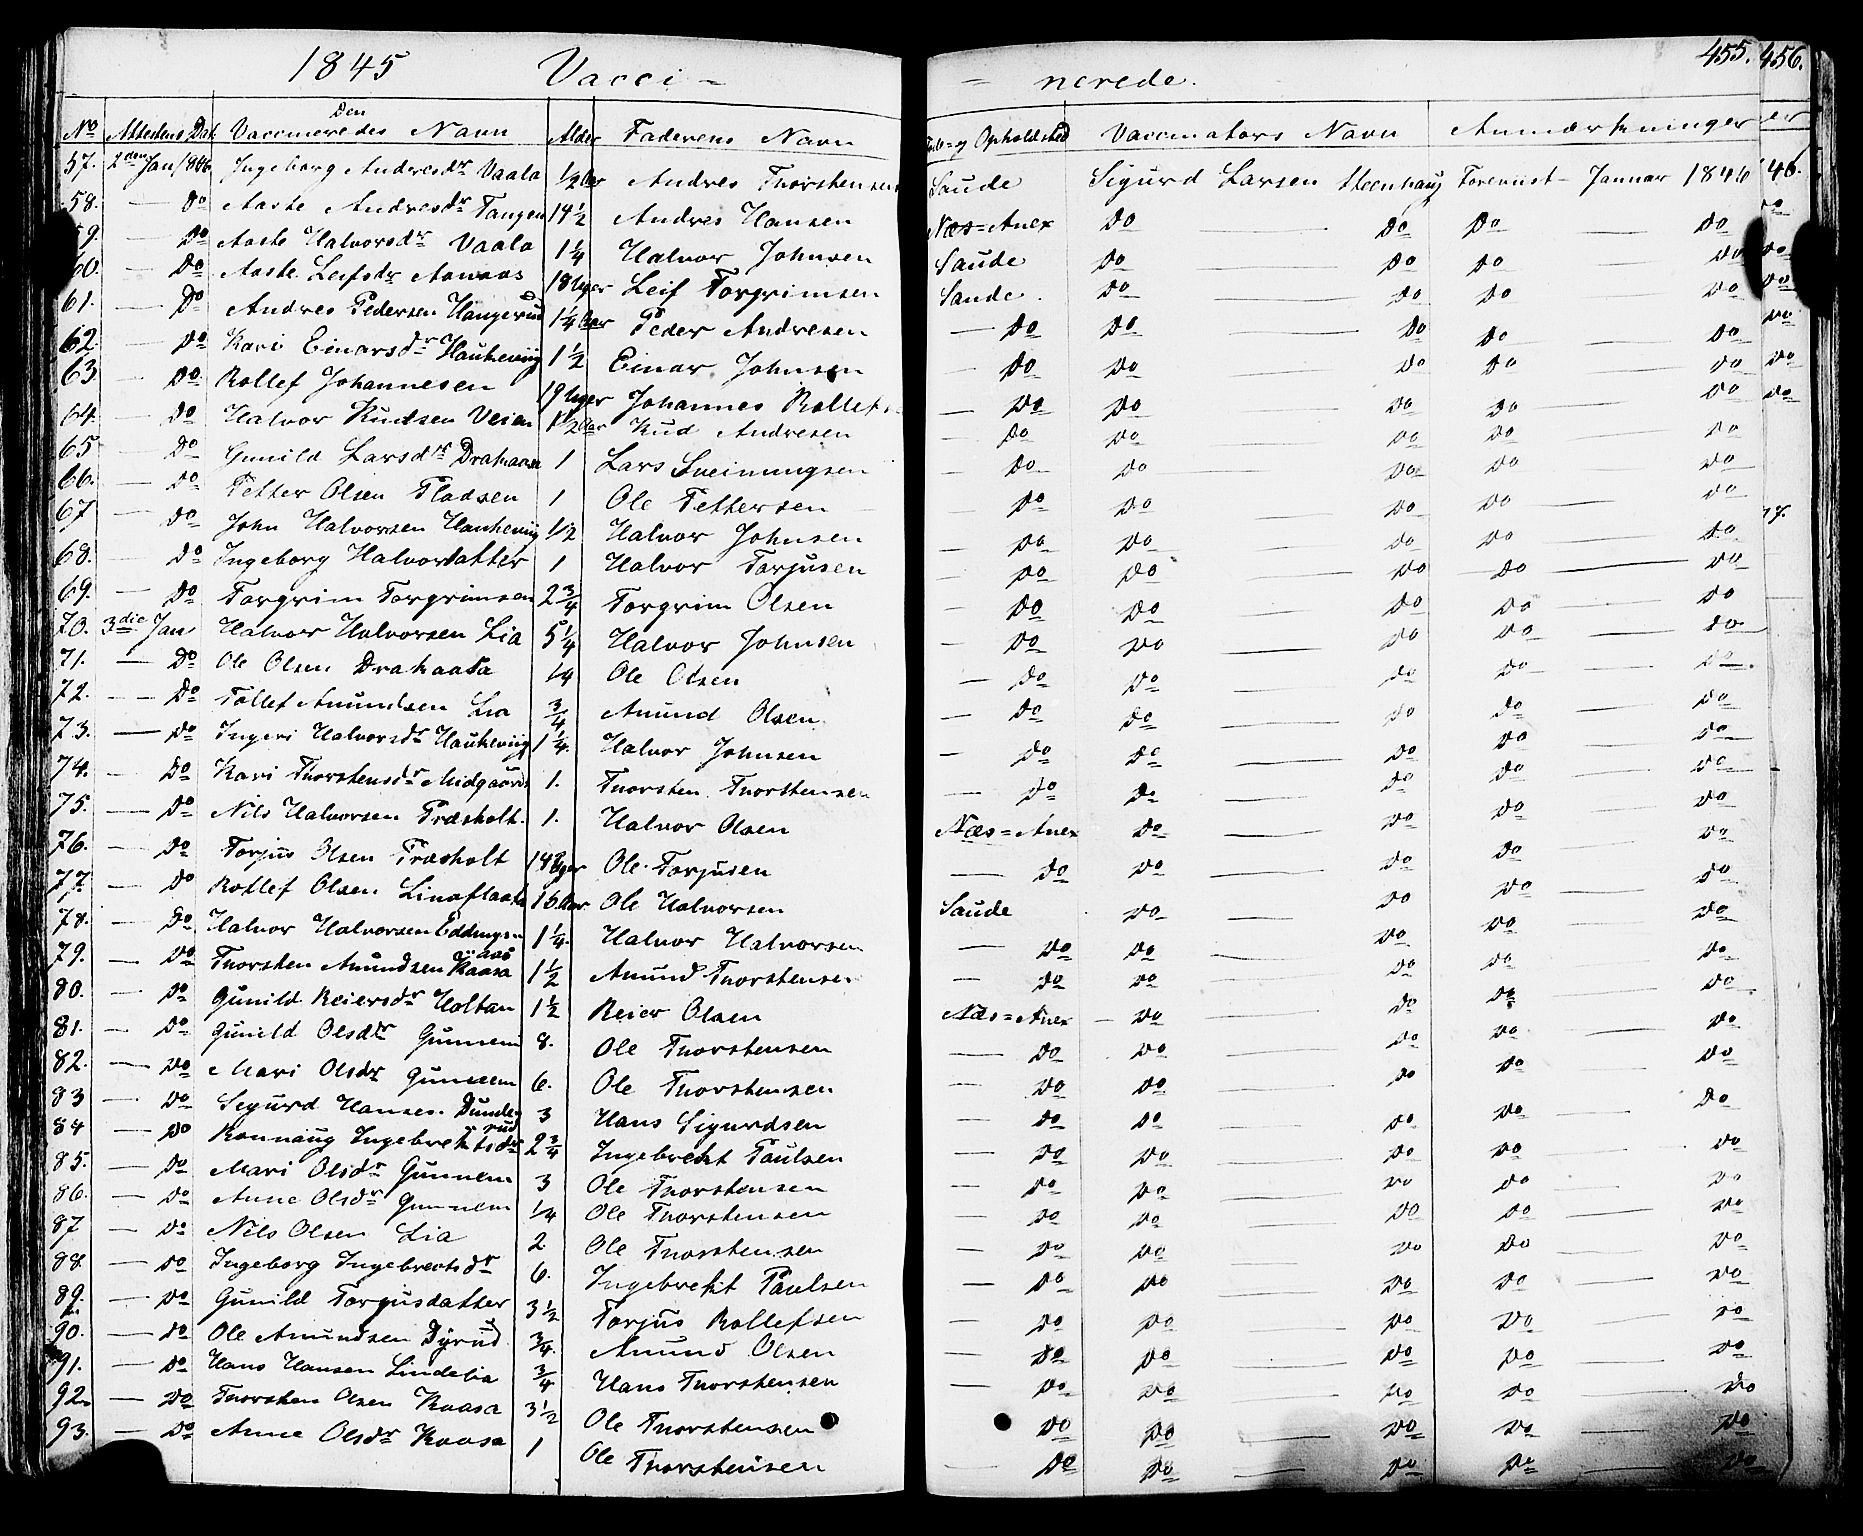 1845 Vacci- - nerede. 455. 456.
No Attestens Dat. Den Vaccineredes Navn Alder Faderens Navn Føde= og Opholdsted Vaccinators Navn Anmærkninger
57. 2den Jan/1846 Ingeborg Andresdr Vaala 1/2 Aar Andres Thorstensen Saude Sigurd Larsen Steenhaug Foreviist - Januar 1846
58. — Do Aaste Andresdr Tangen 14 1/2 Andres Hansen Næs=Anex Do — Do Do — Do
59. — Do Aaste Halvorsdr Vaala 1 1/4 Halvor Johnsen Saude Do — Do Do — Do
60. — Do Aaste Leifsdr 18 Uger Leif Torgrimsen Saude. Do — Do Do — Do
61. — Do Andres Pedersen Haugerud 1 1/4 Aar Peder Andresen — Do Do — Do Do — Do
62. — Do Kari Einarsdr Haukeviig 1 1/2 Einar Johnsen — Do Do — Do Do — Do
63 — Do Rollef Johannesen 19 Uger Johannes Rollefs — Do Do — Do Do — Do
64. — Do Halvor Knudsen Veien 1 1/2 Aar Kud Andresen — Do Do — Do Do — Do
65 — Do Gunild Larsdr Drahaasa 1 Lars Sveinungsen — Do Do — Do Do — Do
66. — Do Petter Olsen Pladsen 1 Ole Pettersen — Do Do — Do Do — Do
67 — Do John Halvorsen Haukeviig 1/2 Halvor Johnsen — Do Do — Do Do — Do
68. — Do Ingeborg Halvordatter 1 Halvor Torjusen — Do Do — Do Do — Do
69. — Do Torgrim Torgrimsen 2 3/4 Torgrim Olsen — Do Do — Do Do — Do
70. 3die Jan Halvor Halvorsen Lia 5 1/4 Halvor Johnsen — Do Do — Do Do — Do
71. — Do Ole Olsen Drahaasa 14 Ole Olsen — Do Do — Do Do — Do
72. — Do Tollef Amundsen Lia 3/4 Amund Olsen — Do Do — Do Do — Do
73. — Do Ingeri Halvorsdr Haukeviig 1 1/4. Halvor Johnsen — Do Do — Do Do — Do
74. — Do Kari Thorstensdr Midgaarden 1. Thorsten Thorstensen — Do Do — Do Do — Do
75. — Do Nils Halvorsen Træsholt. 1. Halvor Olsen Næs=Anex Do — Do Do — Do
76. — Do Torjus Olsen Træsholt 14 Uger Ole Torjusen — Do Do — Do Do — Do
77. — Do Rollef Olsen Linaflaata 16 Aar Ole Halvorsen Saude Do — Do Do — Do
78. — Do Halvor Halvorsen 1 1/4. Halvor Halvorsen — Do Do — Do Do — Do
79. — Do Thorsten Amundsen Kaasa 1 1/2 Amund Thorstensen — Do Do — Do Do — Do
80. — Do Gunild Reiersdr Holtan 1 1/2 Reier Olsen Næs=Anex — Do — Do Do — Do
81. — Do Gunild Olsdr Gunnem 8. Ole Thorstensen — Do Do — Do Do — Do
82. — Do Mari Olsdr Gunnem 6. Ole Thorstensen — Do Do — Do Do — Do
83 — Do Sigurd Hanses. Dunderud 3 Hans Sigurdsen — Do Do — Do Do — Do
84 — Do Ronnaug Ingebrektsdr 2 3/4 Ingebrekt Paulsen — Do Do — Do Do — Do
85. — Do Mari Olsdr Gunnem 3 Ole Thorstensen — Do Do — Do Do — Do
86. — Do Anne Olsdr Gunnem 1/4 Ole Thorstensen — Do Do — Do Do — Do
87 — Do Nils Olsen Lia 2 Ole Thorstensen — Do Do — Do Do — Do
88. — Do Ingeborg Ingebrectsdr 6. Ingebrekt Paulsen — Do Do — Do Do — Do
89. — Do Gunild Torgusdatter 3 1/2 Torjus Rollefsen — Do Do — Do Do — Do
90. — Do Ole Amundsen Dyrud 3/4. Amund Olsen — Do Do — Do Do — Do
91. — Do Hans Hansen Lindelia 3/4 Hans Thorstensen — Do Do — Do Do — Do
92. — Do Thorsten Olsen Kaasa 3 1/2 Ole Thorstensen — Do Do — Do Do — Do
93. — Do Anne Olsdr Kaasa 1 Ole Thorstensen — Do Do — Do Do — Do